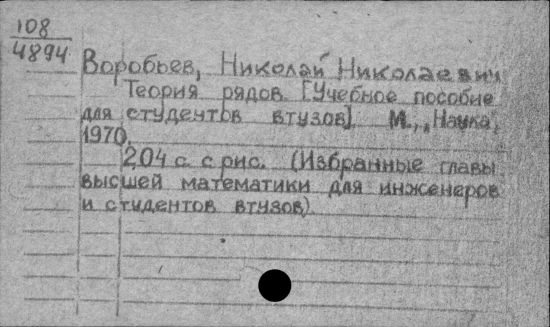 108
4894
Воробьев, Николай Николаевич
Теория рядов. [Учебное пособие
для студентов втузов]. М., „Наука",
1970.
204 с. с рис. (Избранные главы
высшей математики для инженеров
и студентов втузов).